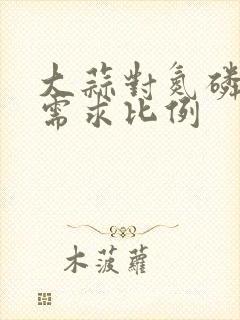 大蒜對氮磷
需求比例
木菠蘿